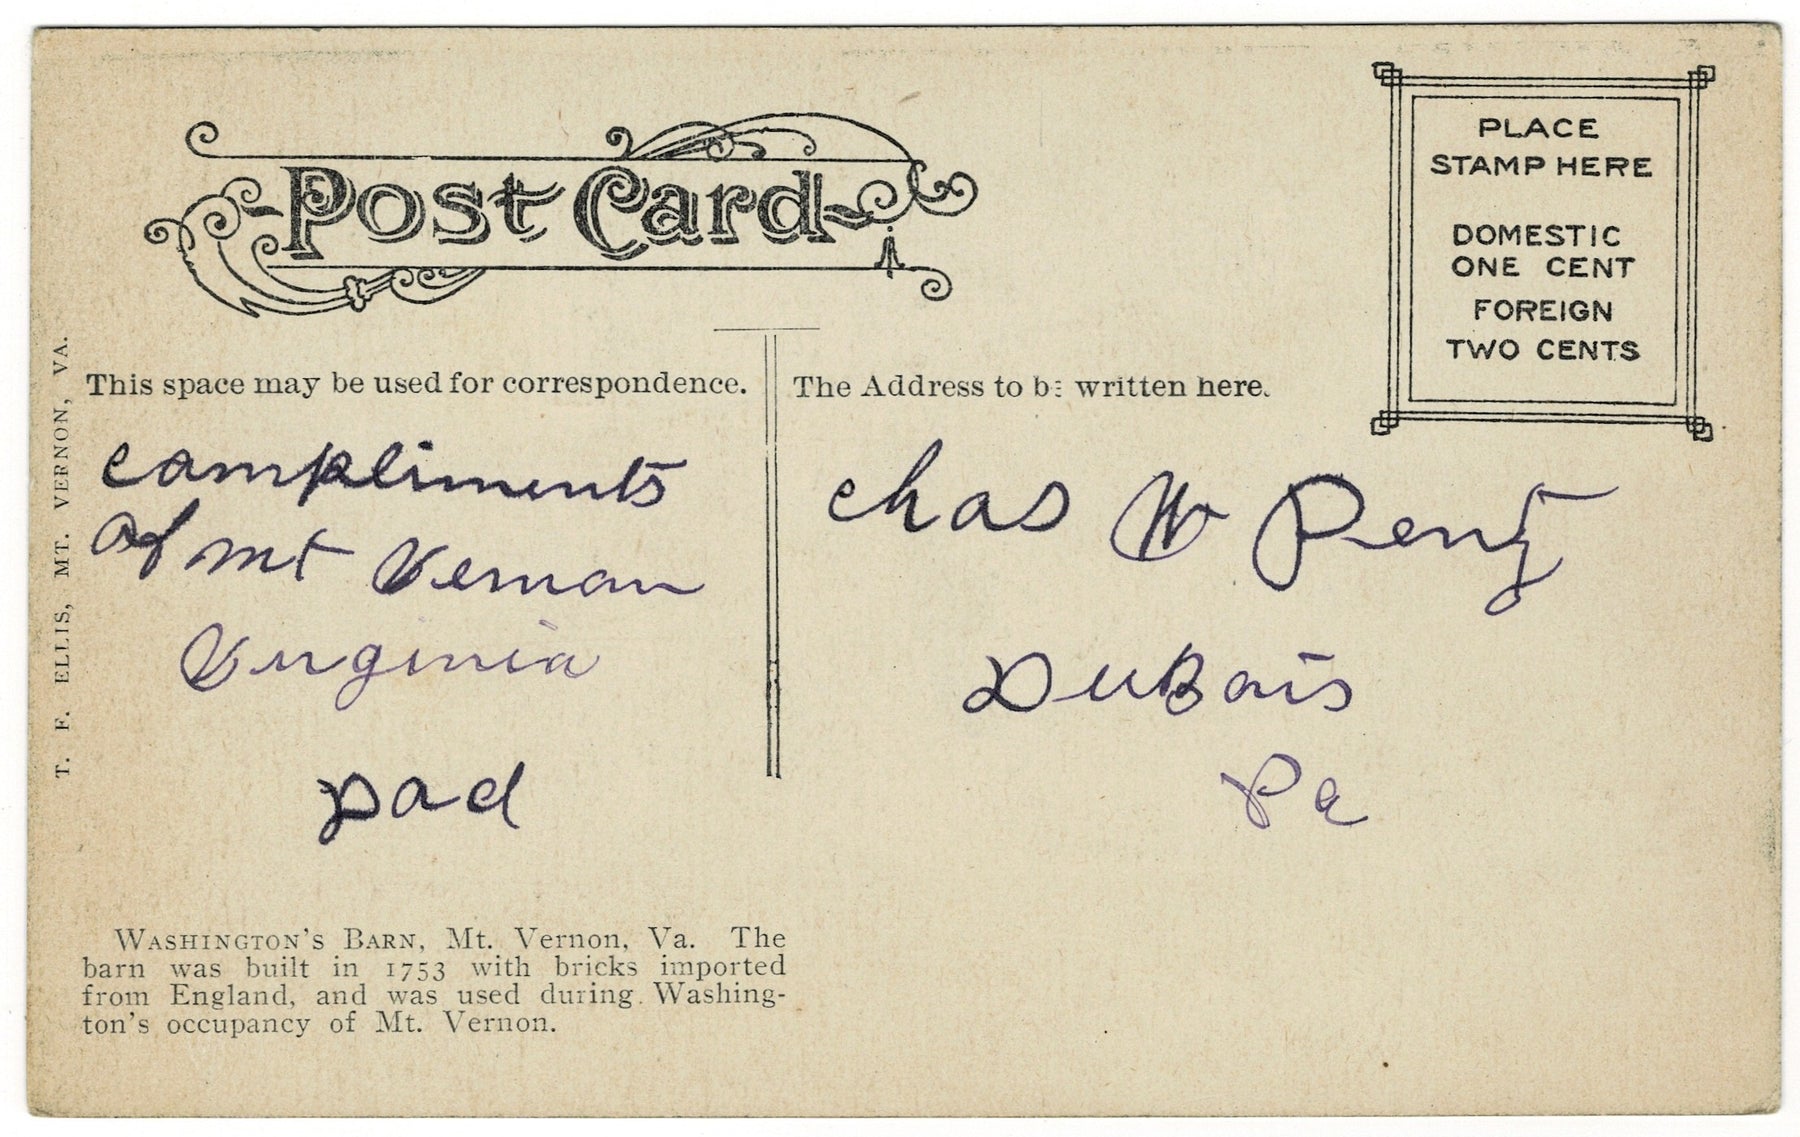 Post Card
PLACE
STAMP HERE
DOMESTIC
ONE CENT
FOREIGN
TWO CENTS
This space may be used for correspondence.
The Address to be written here.
T. F. ELLIS, MT. VERNON, VA.
compliments
of mt Vernon
Virginia
Dad
Chas W Pentz
DuBois
Pa
WASHINGTON'S BARN, Mt. Vernon, Va. The
barn was built in 1753 with bricks imported
from England, and was used during Washing-
ton's occupancy of Mt. Vernon.